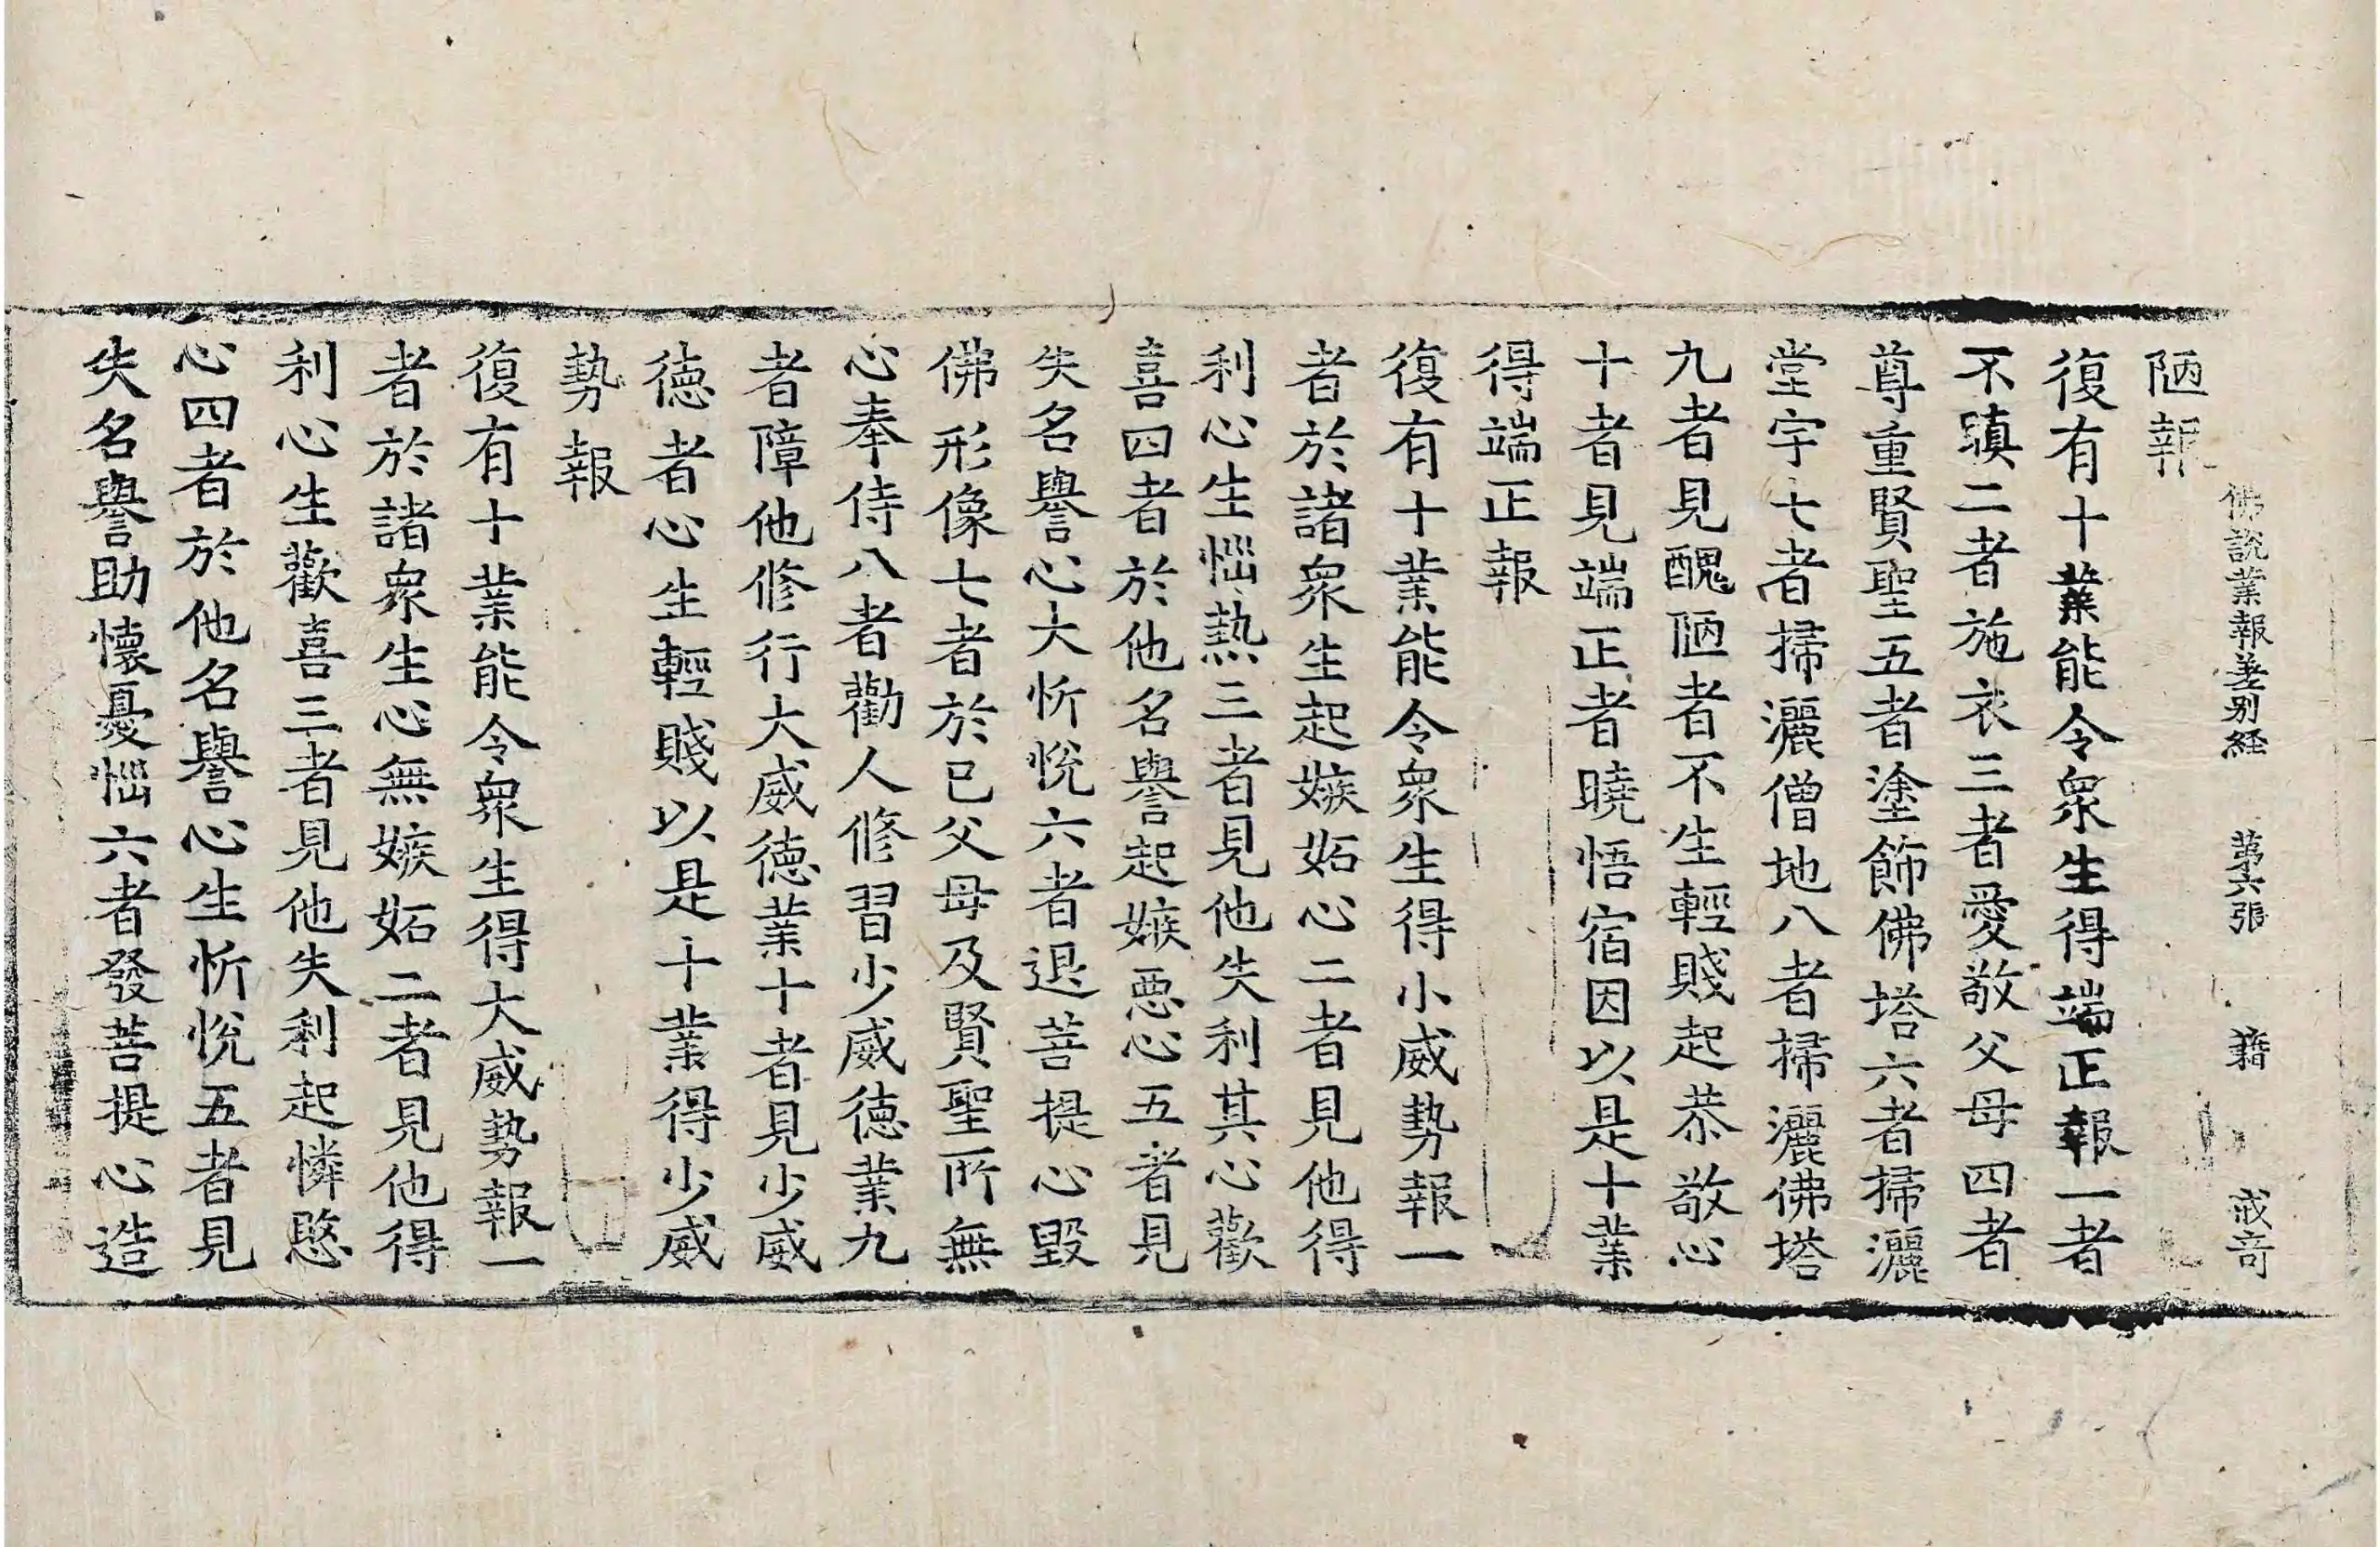 佛說業報差別経 第六張 籍 戒奇
陋報
復有十業能令衆生得端正報一者
不瞋二者施衣三者愛敬父母四者
尊重賢聖五者塗飾佛塔六者掃灑
堂宇七者掃灑僧地八者掃灑佛塔
九者見醜陋者不生輕賤起恭敬心
十者見端正者曉悟宿因以是十業
得端正報
復有十業能令衆生得小威勢報一
者於諸衆生起嫉妬心二者見他得
利心生惱熱三者見他失利其心歡
喜四者於他名譽起嫉惡心五者見
失名譽心大忻悅六者退菩提心毀
佛形像七者於己父母及賢聖所無
心奉侍八者勸人修習少威德業九
者障他修行大威德業十者見少威
德者心生輕賤以是十業得少威
勢報
復有十業能令衆生得大威勢報一
者於諸衆生心無嫉妬二者見他得
利心生歡喜三者見他失利起憐愍
心四者於他名譽心生忻悅五者見
失名譽助懷憂惱六者發菩提心造